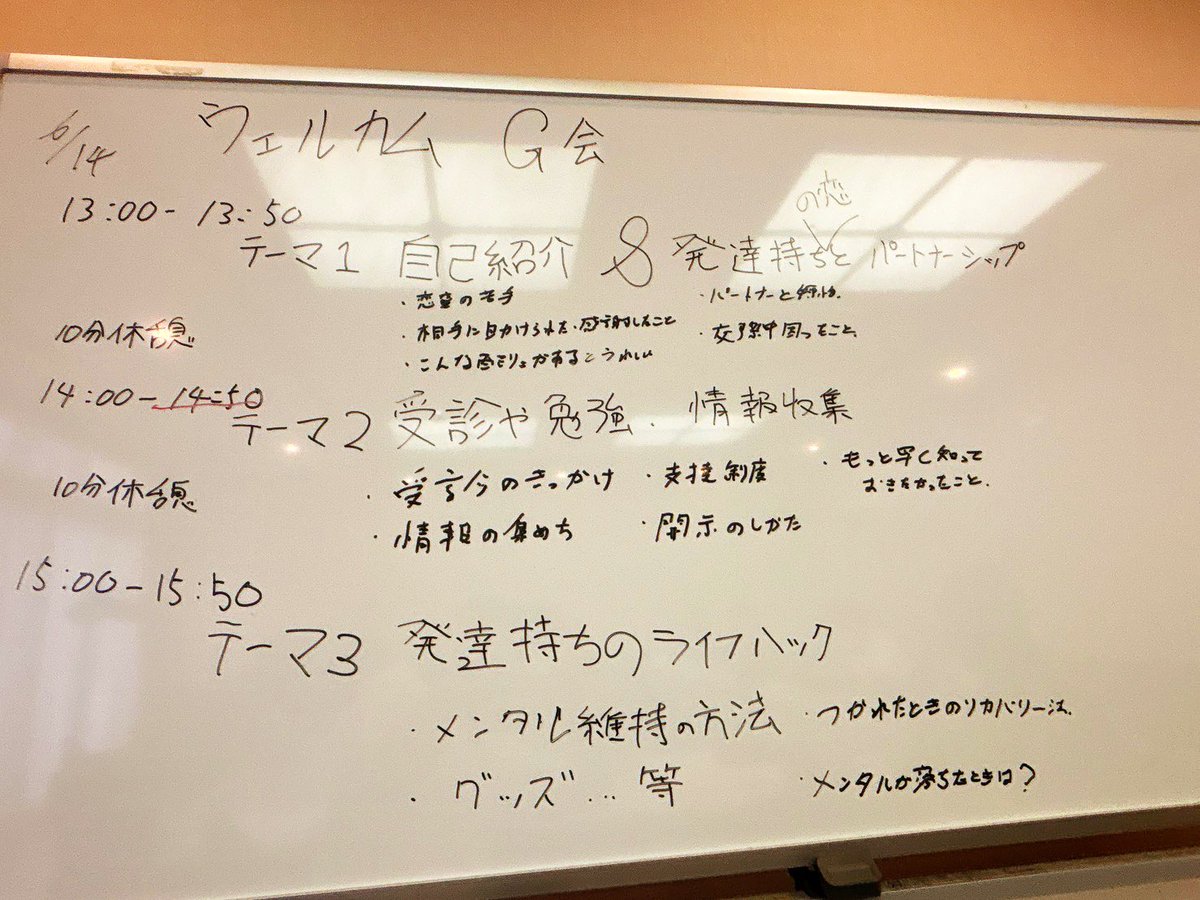 6/14 ウェルカム G会
13:00 - 13:50
の恋
テーマ1 自己紹介 & 発達持ちと パートナーシップ
・恋愛の苦手
・パートナーと
10分休憩
・相手に助けられた、感謝したこと
・交際中困ったこと
・こんな があるとうれしい
14:00 - 14:50
テーマ2 受診や勉強、情報収集
10分休憩
・受診のきっかけ ・支援制度 ・もっと早く知って
おきたかったこと。
・情報の集めち ・開示のしかた
15:00 - 15:50
テーマ3 発達持ちのライフハック
・メンタル維持の方法 ・つかれたときのリカバリーは、
・グッズ…等 ・メンタルが落ちたときは?